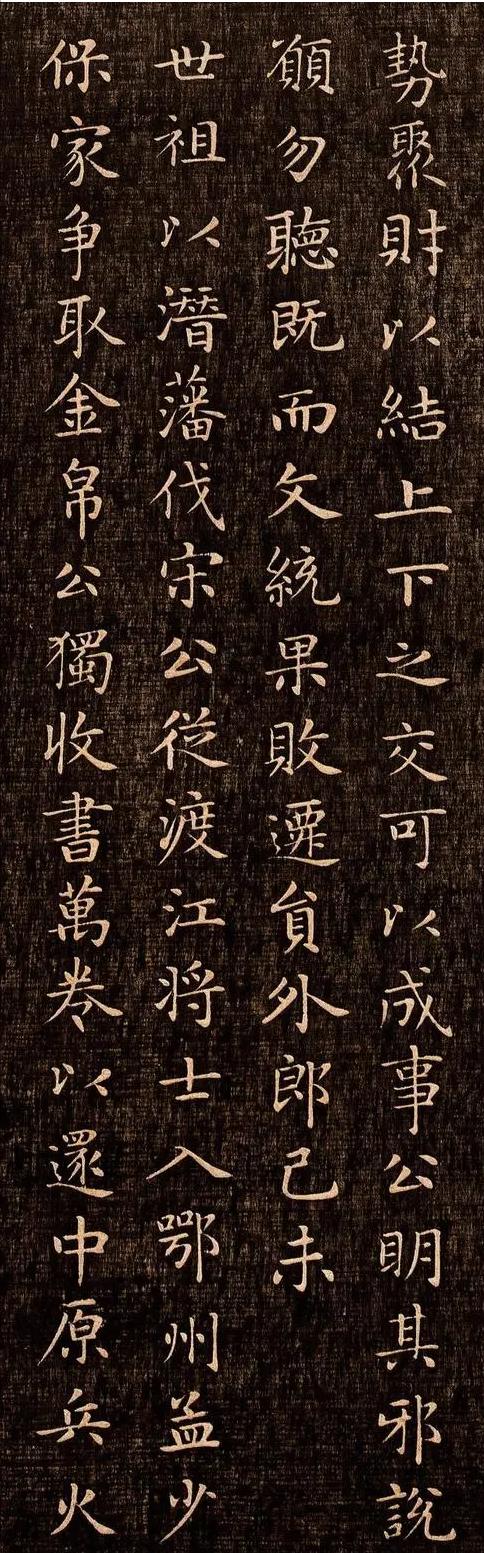 勢聚財以結上下之交可以成事公眀其邪說
願勿聽既而文統果敗遷貟外郎己未
世祖以潛藩伐宋公從渡江将士入鄂州孟少
保家争取金帛公獨收書萬卷以還中原兵火